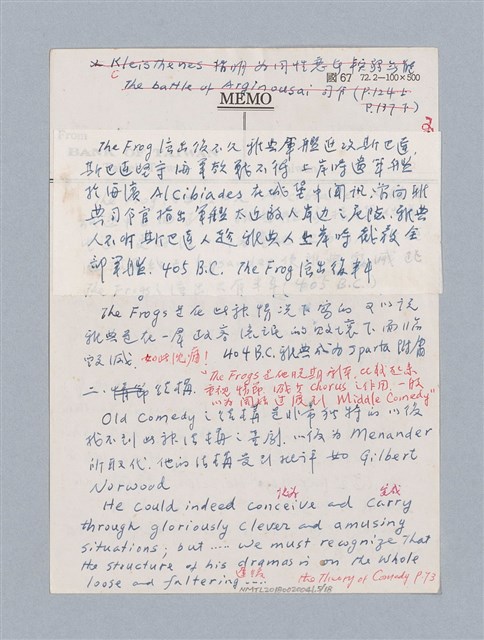 * Kleisthenes 指明為同性恋
C
國67 72.2-100×500
The battle of Arginousai 司令 (P.1245
P.137
MEMO
The Frog 演出後不久雅典軍艦迫攻斯巴達,
斯巴達堅守海軍
於海濱 Alcibiades 在城堡中聞訊,
典司令官指出軍艦太近敵人岸边之危險. 雅典
人不听斯巴達人趁雅典人上岸時截殺全
部軍艦. 405 B.C. The Frog 演出後半年
The Frogs 是在此種情況下寫的 又以後
雅典是在一群政客 的 下而臨
毀滅. 如此悅痛! 404 B.C. 雅典成為 Sparta 附庸
"The Frogs 是他晚期創作, 比較起來
重視情節 減少 chorus 之作用, 一般
以為開始過渡到 Middle Comedy"
二. 情節 結構.
Old Comedy 之結構是非常独特的 以後
找不到此種結構之喜剧. 以後為 Menander
所取代. 他的結構受到批評 如 Gilbert
Norwood
He could indeed conceive and carry
構想
完成
through gloriously clever and amusing
situations; but ..... We must recognize that
the structure of his dramas is on the whole
loose and faltering ....
the Theory of Comedy P73
NMTL20180020041.5/18